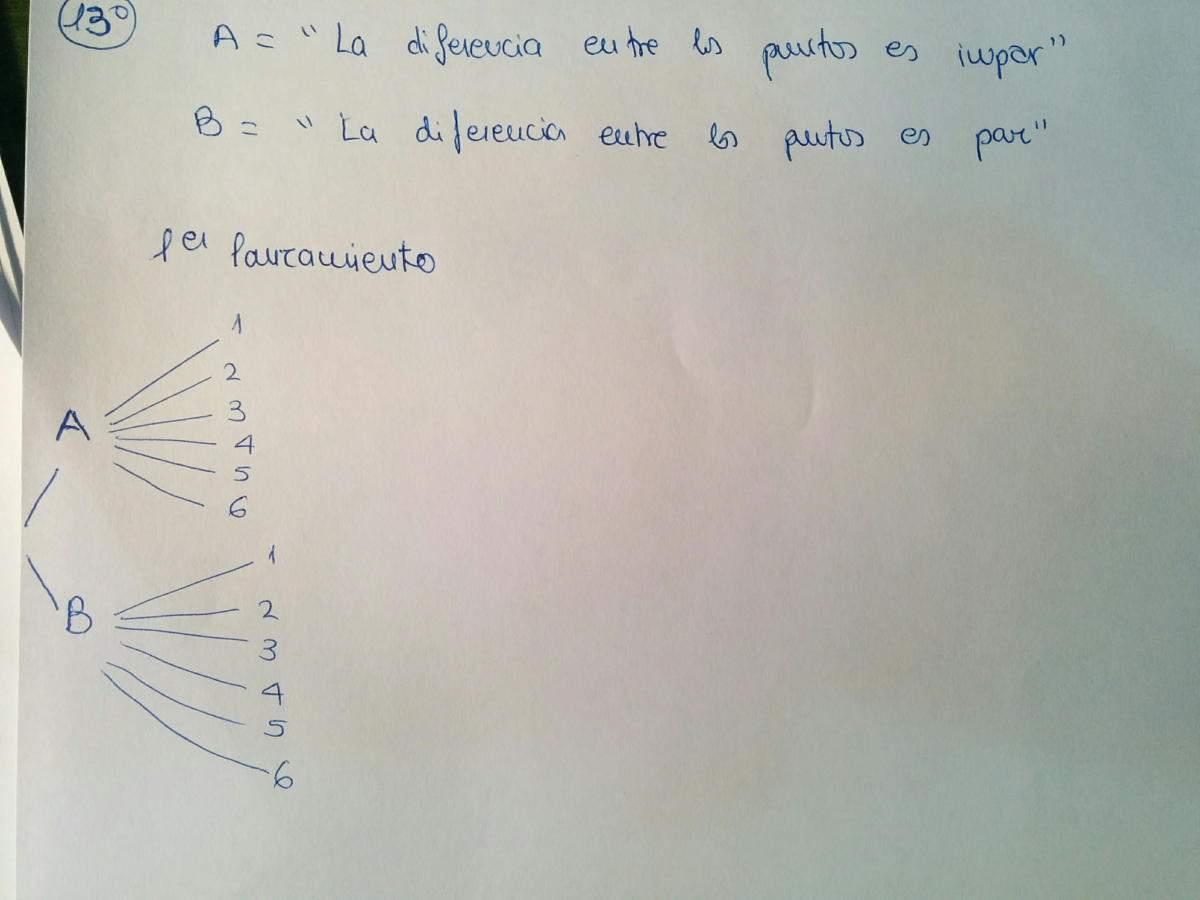 13º
A = "La diferencia entre los puntos es impar"
B = "La diferencia entre los putos es par"
1er lanzamiento
A
1
2
3
4
5
6
B
1
2
3
4
5
6